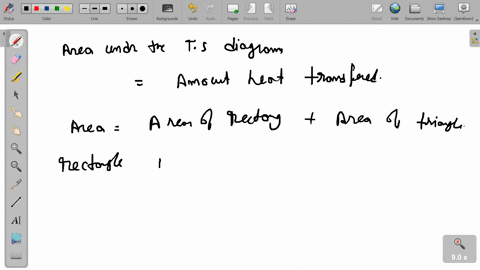 Board
Web
Documents
Show Desktop
OpenBoard
Stylus
Color
Line
Backgrounds
Undo
Redo
Pages
Previous
Next
Erase
Area under the T.S diagram
= Amount heat transfered.
Area = Area of Rectang + Area of triangle.
Rectangle
9.0 x